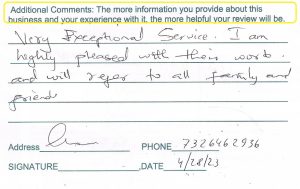 Additional Comments: The more information you provide about this
business and your experience with it, the more helpful your review will be.
Very Exceptional Service. I am
highly pleased with their work.
and will refer to all family and
friends
Address
PHONE 7326462936
SIGNATURE ,DATE 4/28/23